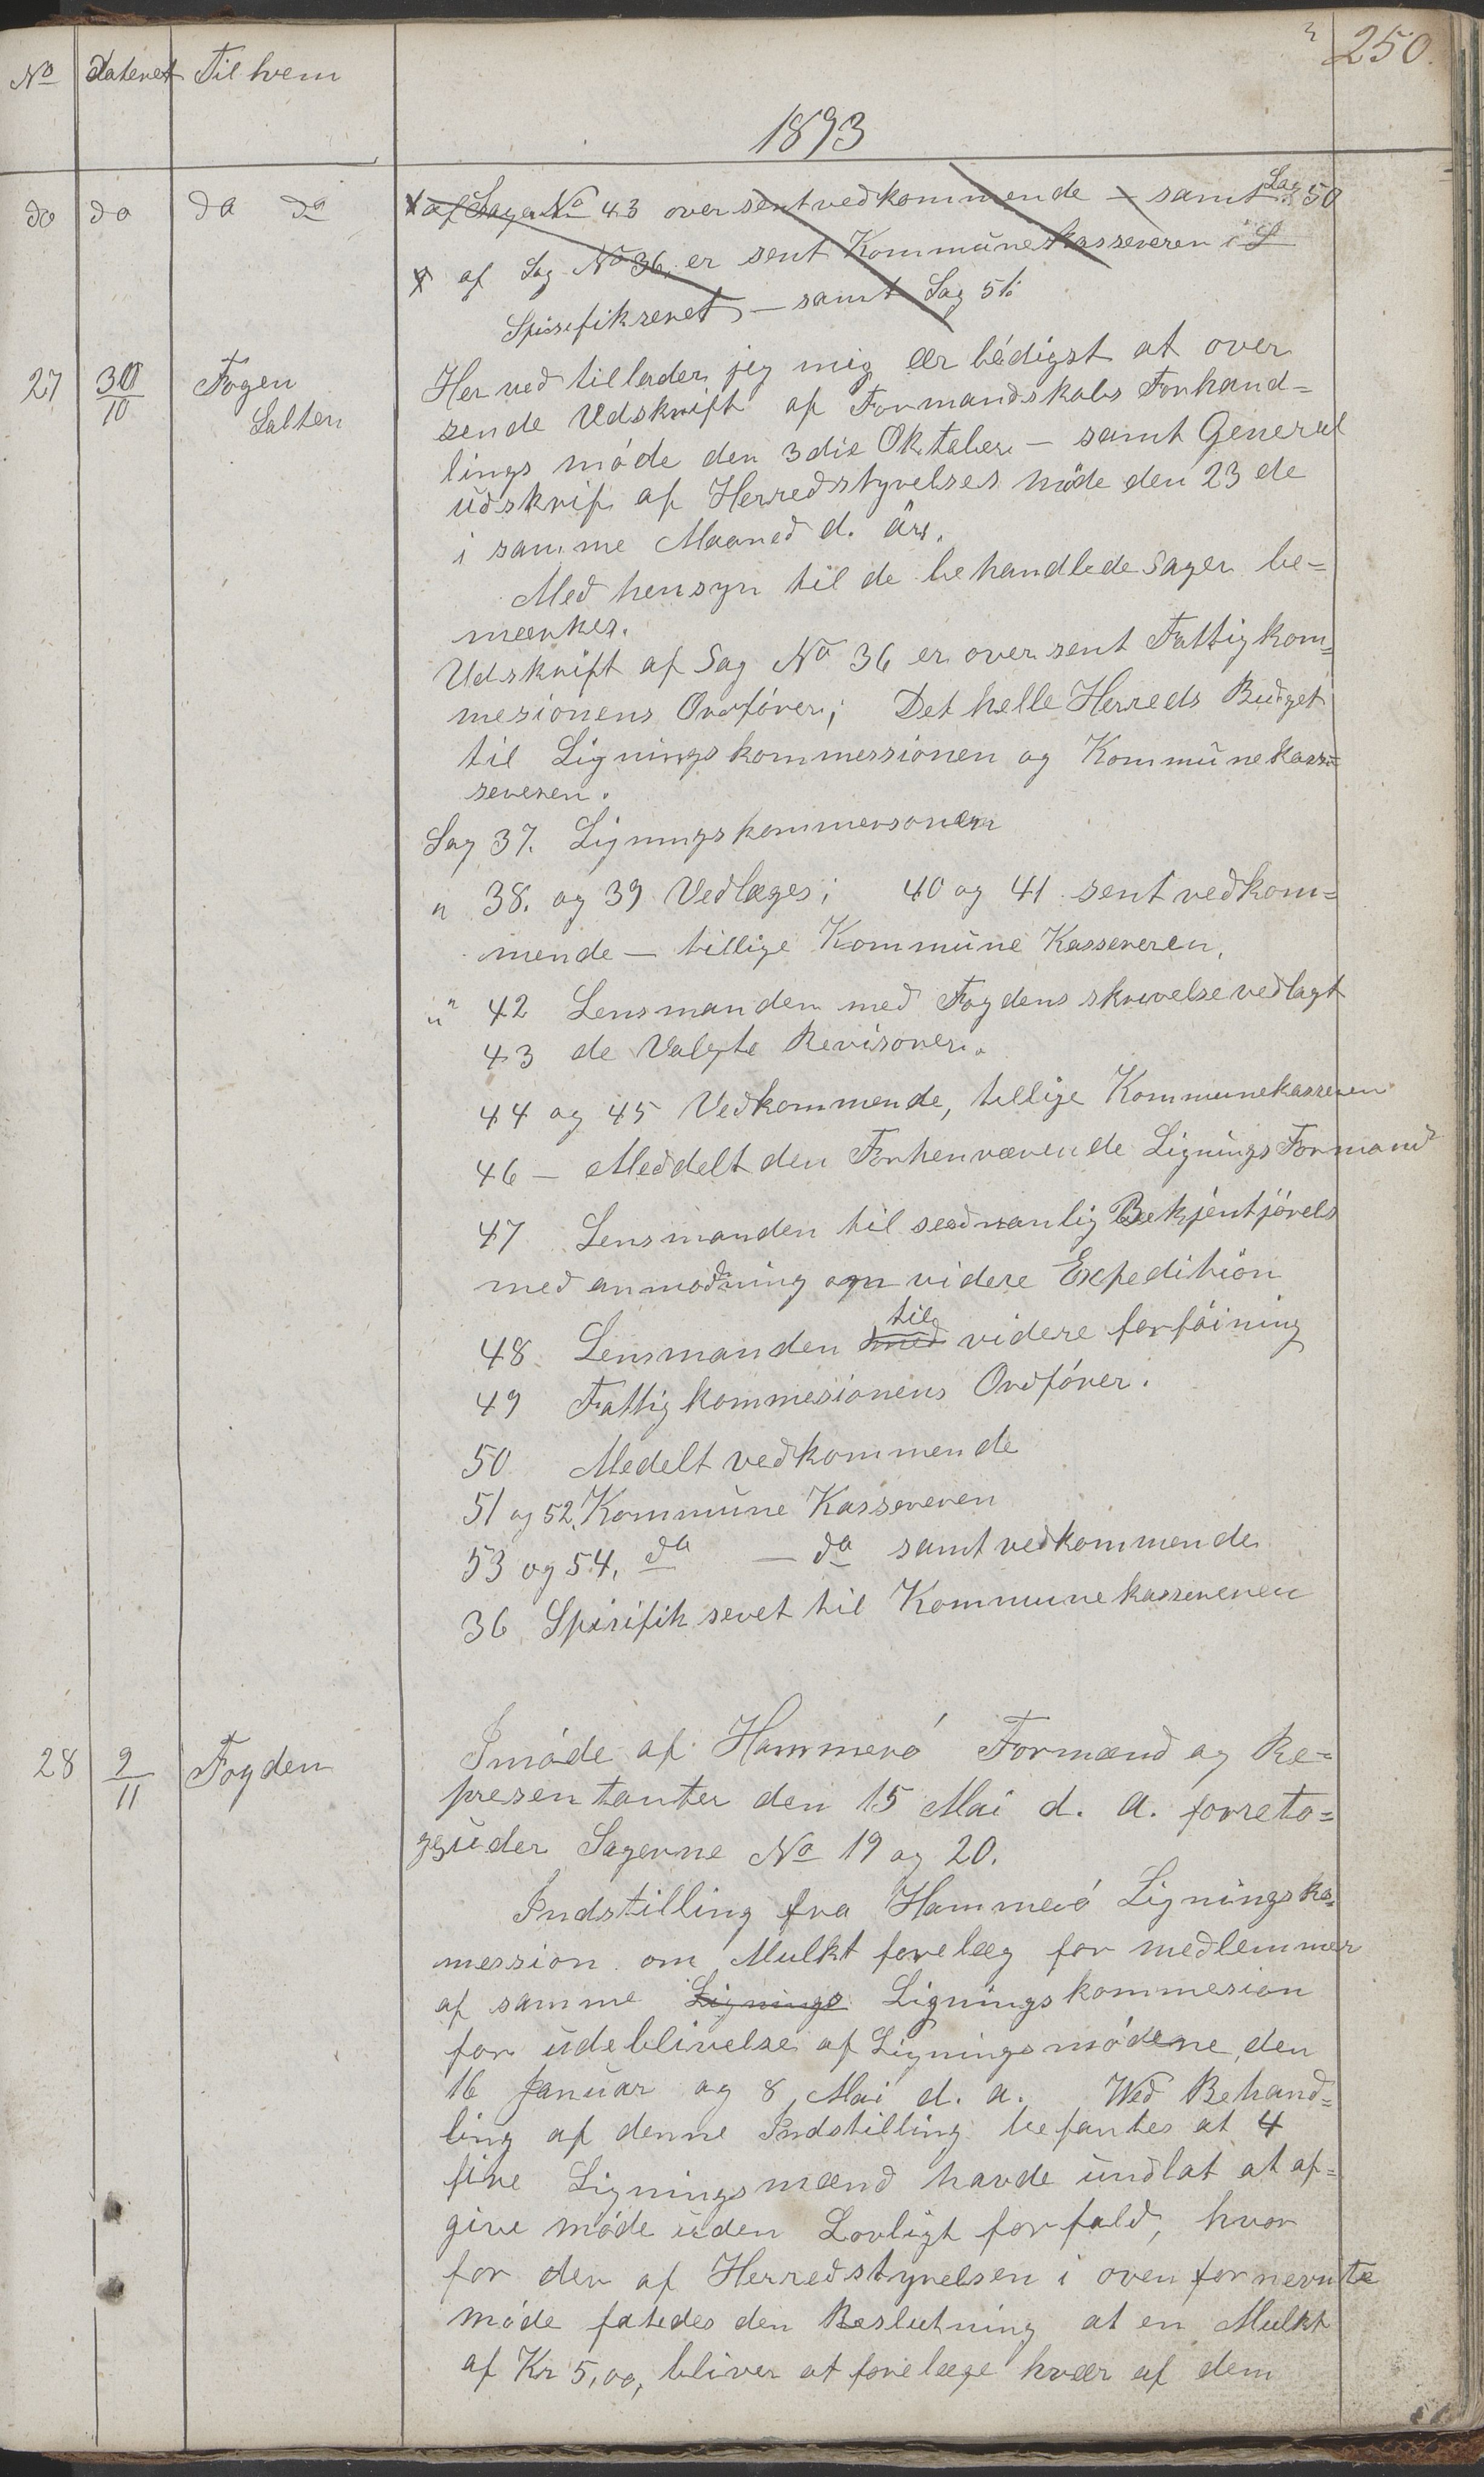 250.
No Dateret Til hvem
1893
do do da da x af Sag No 43 over sent vedkommende – samt Sag 50
x af Sag No 36, er sent Kommunekassereren
Spisefikseret – samt Sag 51.
27 30/10 Fogen Salten
Her ved tillader jeg mig ærbödigst at over
sende Udskrift af Formandskabs Forhand=
lings möde den 3die Oktober – samt General
udskrift af Herredstyrelses möde den 23de
i samme Maaned d. års.
Med hensyn til de behandlede Sager be=
mærkes.
Udskrift af Sag No 36 er over sent Fattigkom=
mesionens Ordförer; Det helle Herreds Budget
til Ligningskommessionen og Kommunekass=
sereren.
Sag 37. Ligningskommersonen
" 38. og 39 Vedlæges; 40 og 41 sent vedkom=
mende – tillige Kommune Kassereren.
" 42 Lensmanden med Fogdens skrivelse vedlagt
43 de Valgte Revisorer.
44 og 45 Vedkommende, tillige Kommunekasseren
46 – Meddelt den Forhenværende Lignings Formand
47 Lensmanden til sedvanlig Bekjentjörels
med anmodning om videre Expedition
48 Lensmanden med til videre forföining
49 Fattigkommesionens Ordförer.
50 Medelt vedkommende
51 og 52. Kommune Kassereren
53 og 54. da – da samt vedkommende
36 Spisifikseret til Kommunekassereren
28 9/11 Fogden
I möde af Hammerö Formænd og Re=
presentanter den 15 Mai d. A. forreto=
ges under Sagerne No 19 og 20.
Indstilling fra Hammerö Ligningsko=
mession om Mulkt forelæg for medlemmer
af samme Lignings Ligningskommesion
for udeblivelse af Ligningsmödene, den
16 Januar og 8 Mai d. a. Wed Behand=
ling af denne Indstilling befantes at 4
fire Ligningsmænd havde undlat at af=
give möde uden Lovligt forfald, hvor
for der af Herredstyrelsen i ovenfornevnte
möde fatedes den Beslutning at en Mulkt
af Kr 5,00, bliver at forelæge hvær af dem